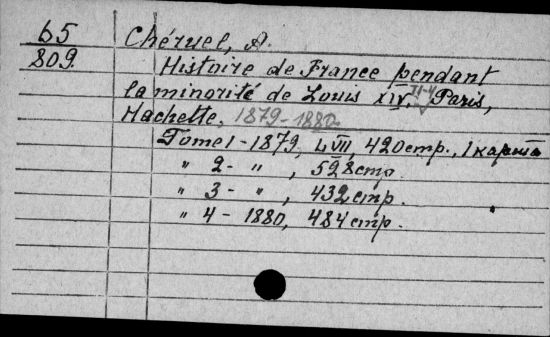 65 Chéruel, A.
809. Histoire de France pendant
la minorité de Louis XIV. Paris,
Hachette, 1879-1880.
Tome 1 - 1879, LVII, 420 стр., 1 карта
" 2 - " , 528 стр.
" 3 - " , 432 стр.
" 4 - 1880, 484 стр.